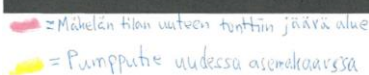 = Mäkelän tilan uuteen tonttiin jäävä alue
= Pumpputie uudessa asemakaavassa